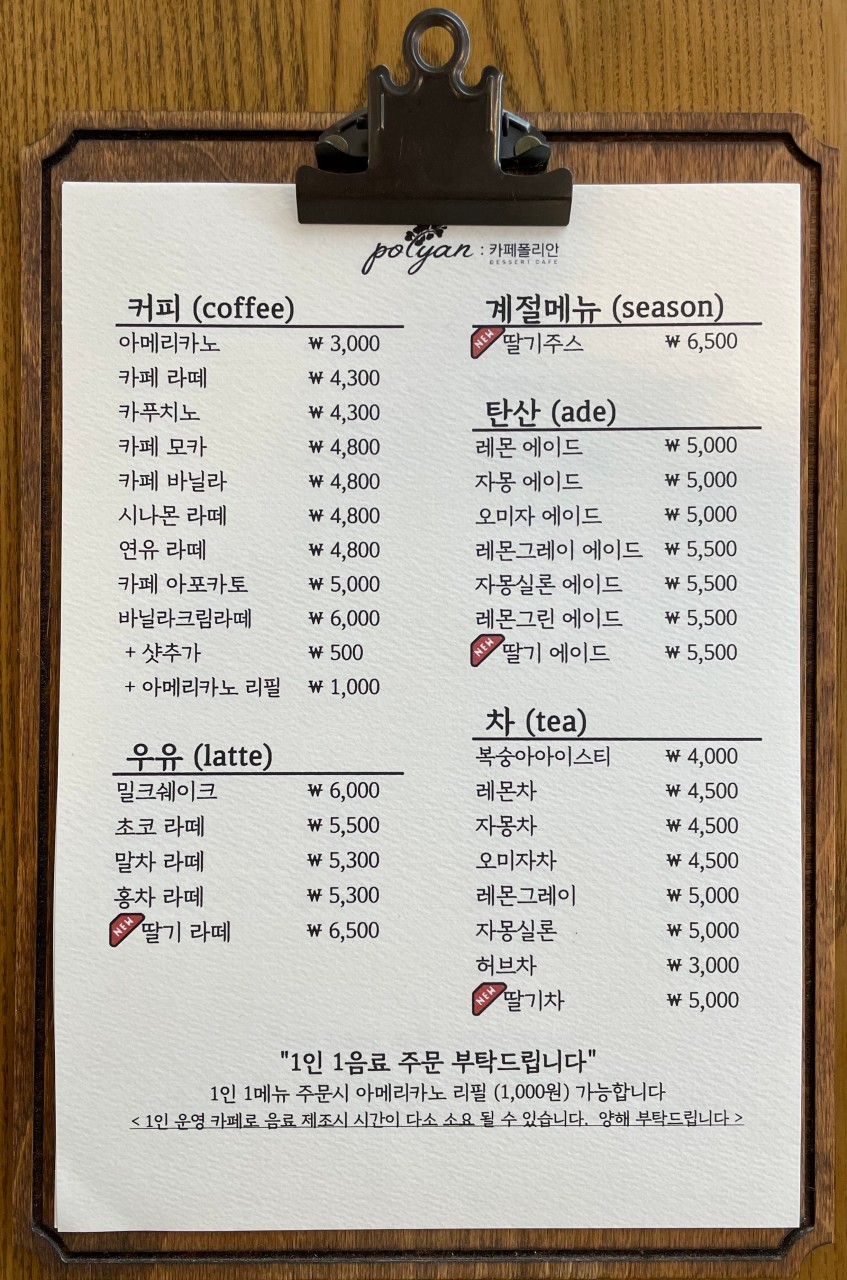 polyan : 카페폴리안
DESSERT CAFE
커피 (coffee)
아메리카노 ₩ 3,000
카페 라떼 ₩ 4,300
카푸치노 ₩ 4,300
카페 모카 ₩ 4,800
카페 바닐라 ₩ 4,800
시나몬 라떼 ₩ 4,800
연유 라떼 ₩ 4,800
카페 아포카토 ₩ 5,000
바닐라크림라떼 ₩ 6,000
+ 샷추가 ₩ 500
+ 아메리카노 리필 ₩ 1,000
우유 (latte)
밀크쉐이크 ₩ 6,000
초코 라떼 ₩ 5,500
말차 라떼 ₩ 5,300
홍차 라떼 ₩ 5,300
NEW 딸기 라떼 ₩ 6,500
계절메뉴 (season)
NEW 딸기주스 ₩ 6,500
탄산 (ade)
레몬 에이드 ₩ 5,000
자몽 에이드 ₩ 5,000
오미자 에이드 ₩ 5,000
레몬그레이 에이드 ₩ 5,500
자몽실론 에이드 ₩ 5,500
레몬그린 에이드 ₩ 5,500
NEW 딸기 에이드 ₩ 5,500
차 (tea)
복숭아아이스티 ₩ 4,000
레몬차 ₩ 4,500
자몽차 ₩ 4,500
오미자차 ₩ 4,500
레몬그레이 ₩ 5,000
자몽실론 ₩ 5,000
허브차 ₩ 3,000
NEW 딸기차 ₩ 5,000
"1인 1음료 주문 부탁드립니다"
1인 1메뉴 주문시 아메리카노 리필 (1,000원) 가능합니다
< 1인 운영 카페로 음료 제조시 시간이 다소 소요 될 수 있습니다. 양해 부탁드립니다 >